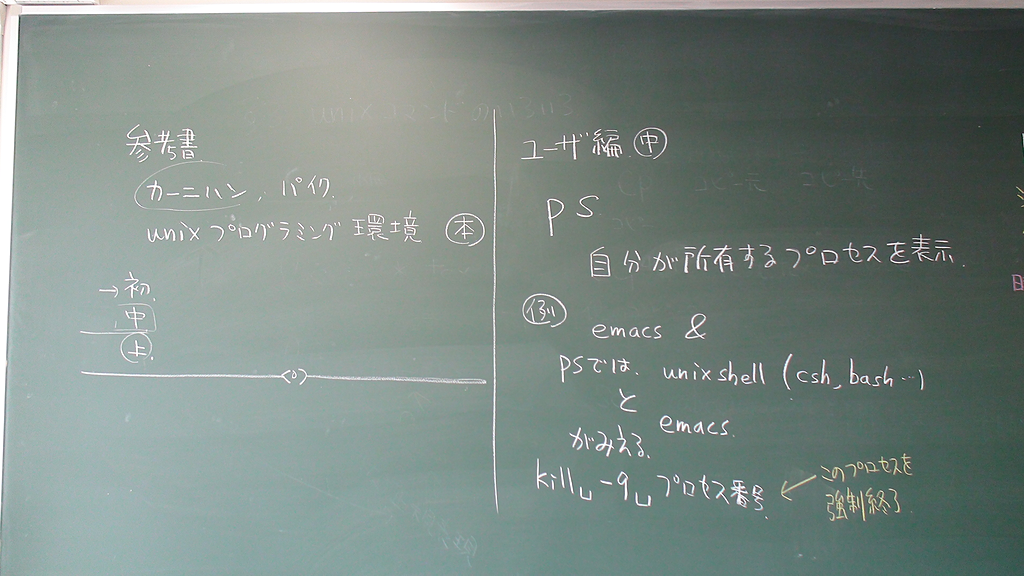 参考書
カーニハン, パイク.
unix プログラミング環境 本
→初.
中
上.
ユーザ編 中
ps
自分が所有するプロセスを表示.
例
emacs &
psでは. unixshell (csh, bash…)
と
emacs.
がみえる.
kill␣-9␣プロセス番号. ← このプロセスを
強制終了